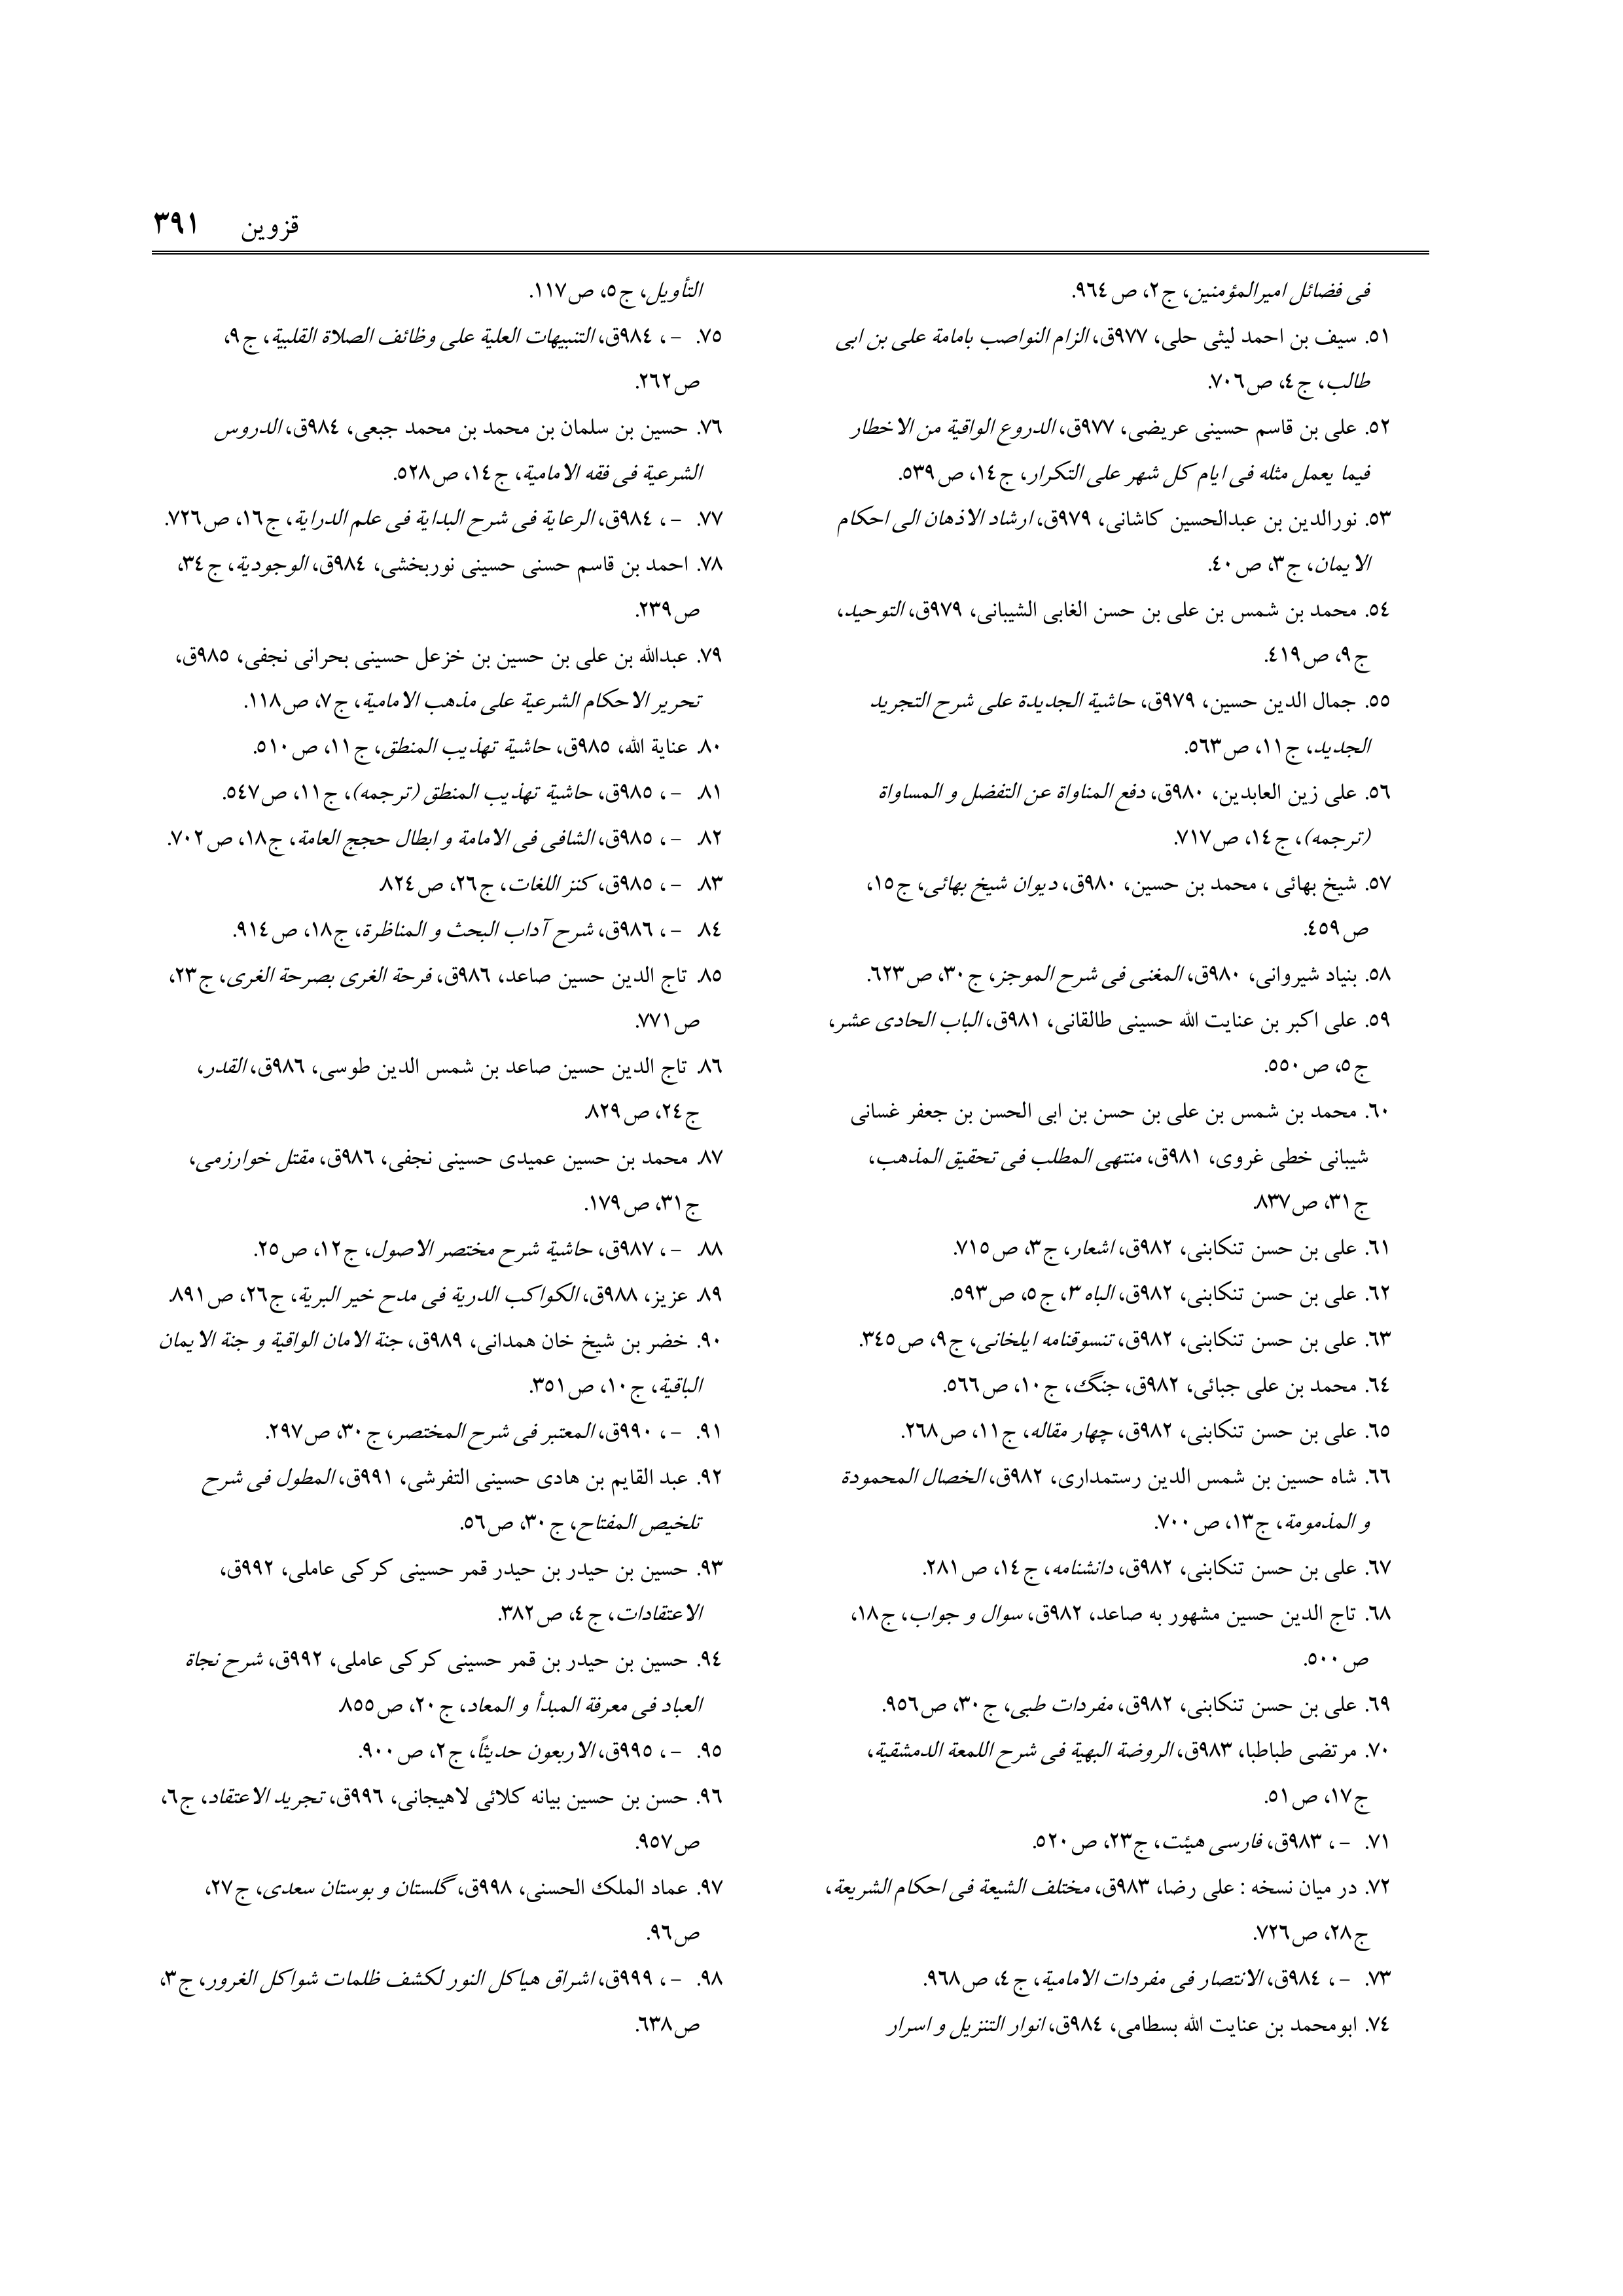 قزوین ۳۹۱
فی فضائل امیرالمؤمنین، ج۲، ص۹٦٤.
٥۱. سیف بن احمد لیثی حلی، ۹۷۷ق، الزام النواصب بامامة علی بن ابی
طالب، ج٤، ص۷۰٦.
٥۲. علی بن قاسم حسینی عریضی، ۹۷۷ق، الدروع الواقیة من الاخطار
فیما یعمل مثله فی ایام کل شهر علی التکرار، ج۱٤، ص٥۳۹.
٥۳. نورالدین بن عبدالحسین کاشانی، ۹۷۹ق، ارشاد الاذهان الی احکام
الایمان، ج۳، ص٤۰.
٥٤. محمد بن شمس بن علی بن حسن الغابی الشیبانی، ۹۷۹ق، التوحید،
ج۹، ص٤۱۹.
٥٥. جمال الدین حسین، ۹۷۹ق، حاشیة الجدیدة علی شرح التجرید
الجدید، ج۱۱، ص٥٦۳.
٥٦. علی زین العابدین، ۹۸۰ق، دفع المناواة عن التفضل و المساواة
(ترجمه)، ج۱٤، ص۷۱۷.
٥۷. شیخ بهائی ، محمد بن حسین، ۹۸۰ق، دیوان شیخ بهائی، ج۱٥،
ص٤٥۹.
٥۸. بنیاد شیروانی، ۹۸۰ق، المغنی فی شرح الموجز، ج۳۰، ص٦۲۳.
٥۹. علی اکبر بن عنایت الله حسینی طالقانی، ۹۸۱ق، الباب الحادی عشر،
ج٥، ص٥٥۰.
٦۰. محمد بن شمس بن علی بن حسن بن ابی الحسن بن جعفر غسانی
شیبانی خطی غروی، ۹۸۱ق، منتهی المطلب فی تحقیق المذهب،
ج۳۱، ص۸۳۷.
٦۱. علی بن حسن تنکابنی، ۹۸۲ق، اشعار، ج۳، ص۷۱٥.
٦۲. علی بن حسن تنکابنی، ۹۸۲ق، الباه ۳، ج٥، ص٥۹۳.
٦۳. علی بن حسن تنکابنی، ۹۸۲ق، تنسوقنامه ایلخانی، ج۹، ص۳٤٥.
٦٤. محمد بن علی جبائی، ۹۸۲ق، جنگ، ج۱۰، ص٥٦٦.
٦٥. علی بن حسن تنکابنی، ۹۸۲ق، چهار مقاله، ج۱۱، ص۲٦۸.
٦٦. شاه حسین بن شمس الدین رستمداری، ۹۸۲ق، الخصال المحمودة
و المذمومة، ج۱۳، ص۷۰۰.
٦۷. علی بن حسن تنکابنی، ۹۸۲ق، دانشنامه، ج۱٤، ص۲۸۱.
٦۸. تاج الدین حسین مشهور به صاعد، ۹۸۲ق، سوال و جواب، ج۱۸،
ص٥۰۰.
٦۹. علی بن حسن تنکابنی، ۹۸۲ق، مفردات طبی، ج۳۰، ص۹٥٦.
۷۰. مرتضی طباطبا، ۹۸۳ق، الروضة البهیة فی شرح اللمعة الدمشقیة،
ج۱۷، ص٥۱.
۷۱. -، ۹۸۳ق، فارسی هیئت، ج۲۳، ص٥۲۰.
۷۲. در میان نسخه : علی رضا، ۹۸۳ق، مختلف الشیعة فی احکام الشریعة،
ج۲۸، ص۷۲٦.
۷۳. -، ۹۸٤ق، الانتصار فی مفردات الامامیة، ج٤، ص۹٦۸.
۷٤. ابومحمد بن عنایت الله بسطامی، ۹۸٤ق، انوار التنزیل و اسرار
التأویل، ج٥، ص۱۱۷.
۷٥. -، ۹۸٤ق، التنبیهات العلیة علی وظائف الصلاة القلبیة، ج۹،
ص۲٦۲.
۷٦. حسین بن سلمان بن محمد بن محمد جبعی، ۹۸٤ق، الدروس
الشرعیة فی فقه الامامیة، ج۱٤، ص٥۲۸.
۷۷. -، ۹۸٤ق، الرعایة فی شرح البدایة فی علم الدرایة، ج۱٦، ص۷۲٦.
۷۸. احمد بن قاسم حسنی حسینی نوربخشی، ۹۸٤ق، الوجودیة، ج۳٤،
ص۲۳۹.
۷۹. عبدالله بن علی بن حسین بن خزعل حسینی بحرانی نجفی، ۹۸٥ق،
تحریر الاحکام الشرعیة علی مذهب الامامیة، ج۷، ص۱۱۸.
۸۰. عنایة الله، ۹۸٥ق، حاشیة تهذیب المنطق، ج۱۱، ص٥۱۰.
۸۱. -، ۹۸٥ق، حاشیة تهذیب المنطق (ترجمه)، ج۱۱، ص٥٤۷.
۸۲. -، ۹۸٥ق، الشافی فی الامامة و ابطال حجج العامة، ج۱۸، ص۷۰۲.
۸۳. -، ۹۸٥ق، کنز اللغات، ج۲٦، ص۸۲٤.
۸٤. -، ۹۸٦ق، شرح آداب البحث و المناظرة، ج۱۸، ص۹۱٤.
۸٥. تاج الدین حسین صاعد، ۹۸٦ق، فرحة الغری بصرحة الغری، ج۲۳،
ص۷۷۱.
۸٦. تاج الدین حسین صاعد بن شمس الدین طوسی، ۹۸٦ق، القدر،
ج۲٤، ص۸۲۹.
۸۷. محمد بن حسین عمیدی حسینی نجفی، ۹۸٦ق، مقتل خوارزمی،
ج۳۱، ص۱۷۹.
۸۸. -، ۹۸۷ق، حاشیة شرح مختصر الاصول، ج۱۲، ص۲٥.
۸۹. عزیز، ۹۸۸ق، الکواکب الدریة فی مدح خیر البریة، ج۲٦، ص۸۹۱.
۹۰. خضر بن شیخ خان همدانی، ۹۸۹ق، جنة الامان الواقیة و جنة الایمان
الباقیة، ج۱۰، ص۳٥۱.
۹۱. -، ۹۹۰ق، المعتبر فی شرح المختصر، ج۳۰، ص۲۹۷.
۹۲. عبد القایم بن هادی حسینی التفرشی، ۹۹۱ق، المطول فی شرح
تلخیص المفتاح، ج۳۰، ص٥٦.
۹۳. حسین بن حیدر بن حیدر قمر حسینی کرکی عاملی، ۹۹۲ق،
الاعتقادات، ج٤، ص۳۸۲.
۹٤. حسین بن حیدر بن قمر حسینی کرکی عاملی، ۹۹۲ق، شرح نجاة
العباد فی معرفة المبدأ و المعاد، ج۲۰، ص۸٥٥.
۹٥. -، ۹۹٥ق، الاربعون حدیثاً، ج۲، ص۹۰۰.
۹٦. حسن بن حسین بیانه کلائی لاهیجانی، ۹۹٦ق، تجرید الاعتقاد، ج٦،
ص۹٥۷.
۹۷. عماد الملک الحسنی، ۹۹۸ق، گلستان و بوستان سعدی، ج۲۷،
ص۹٦.
۹۸. -، ۹۹۹ق، اشراق هیاکل النور لکشف ظلمات شواکل الغرور، ج۳،
ص٦۳۸.